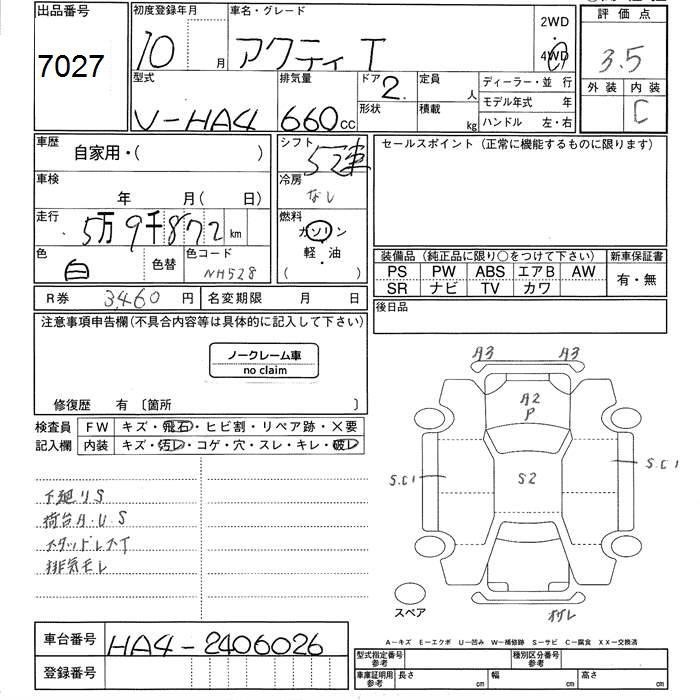 出品番号
7027
初度登録年月
10 月
車名・グレード
アクティ T
2WD
4WD
評価点
3.5
外装 内装
C
型式
V-HA4
排気量
660 cc
ドア
2
形状
定員
人
積載
kg
ディーラー・並 行
モデル年式 年
ハンドル 左・右
車歴
自家用・( )
シフト
5速
セールスポイント (正常に機能するものに限ります)
車検
年 月( 日)
冷房
なし
走行
5万9千872 km
燃料
ガソリン
軽・油
( )
色
白
色替
色コード
NH528
装備品 (純正品に限り○をつけて下さい)
新車保証書
PS PW ABS エアB AW
SR ナビ TV カワ
有・無
R券 3460 円
名変期限 月 日
後日品
注意事項申告欄(不具合内容等は具体的に記入して下さい)
ノークレーム車
no claim
修復歴 有 〔箇所 〕
検査員
記入欄
FW キズ・飛石・ヒビ割・リペア跡・×要
内装 キズ・汚レ・コゲ・穴・スレ・キレ・破レ
下廻リS
荷台A.U S
スタッドレスT
排気モレ
A3 A3
A2
P
S2
S.C1
S.C1
スペア
オサレ
車台番号
HA4-2406026
登録番号
A-キズ E-エクボ U-凹み W-補修跡 S-サビ C-腐食 XX-交換済
型式指定番号
参考
種別区分番号
参考
車庫証明用
参考
長さ cm
幅 cm
高さ cm